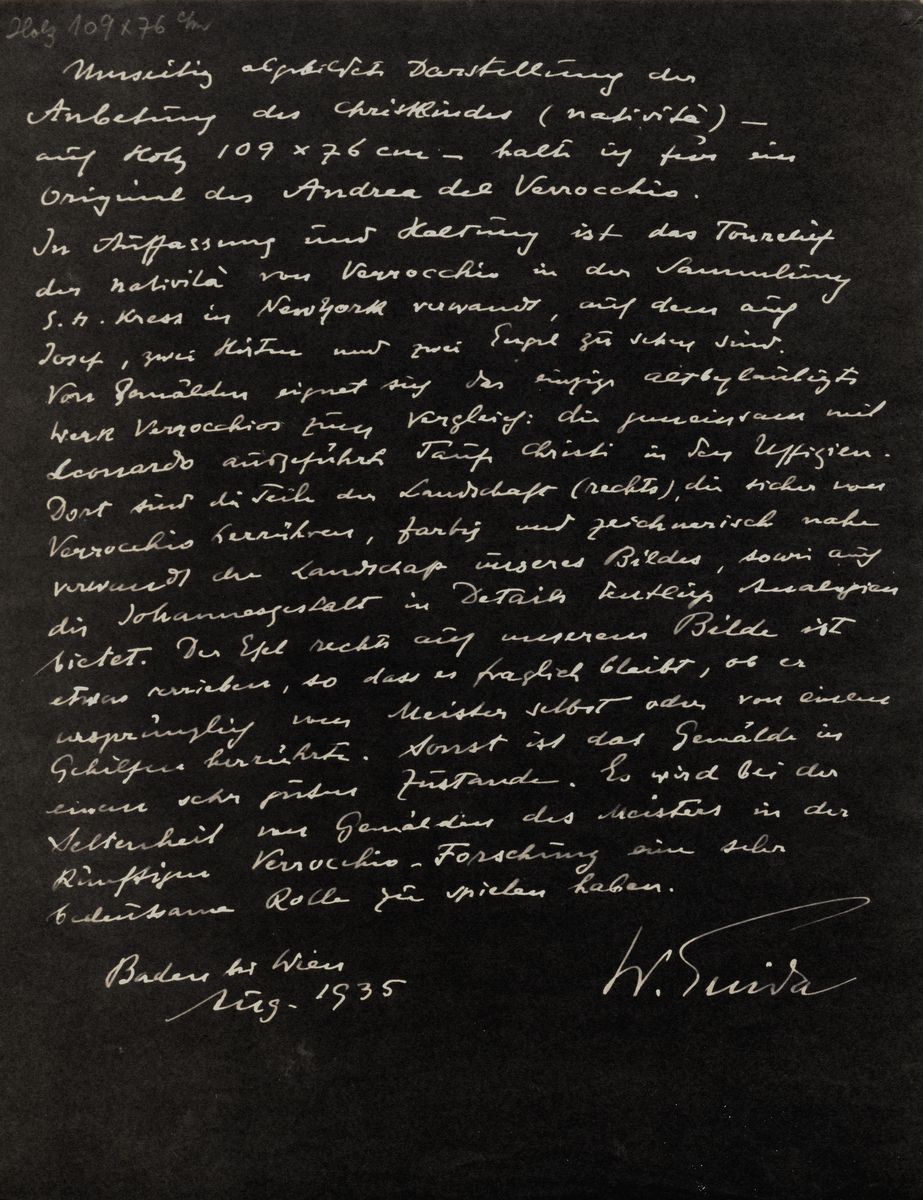 Holz 109 x 76 c/m
Umseitig abgebildete Darstellung der
Anbetung des Christkindes (natività) –
auf Holz 109 x 76 cm – halte ich für ein
Original des Andrea del Verrocchio.
In Auffassung und Haltung ist das Tonrelief
der natività von Verrocchio in der Sammlung
S. H. Kress in New York verwandt, auf dem auch
Josef, zwei Hirten und zwei Engel zu sehen sind.
Von Gemälden eignet sich das einzige altbeglaubigte
Werk Verrocchios zum Vergleich: die gemeinsam mit
Leonardo ausgeführte Taufe Christi in den Uffizien.
Dort sind die Teile der Landschaft (rechts), die sicher von
Verrocchio herrühren, farbig und zeichnerisch nahe
verwandt der Landschaft unseres Bildes, sowie auch
die Johannesgestalt in Details deutliche Analogien
bietet. Der Esel rechts auf unserem Bilde ist
etwas verrieben, so dass es fraglich bleibt, ob er
ursprünglich vom Meister selbst oder von einem
Gehilfen herrührte. Sonst ist das Gemälde in
einem sehr guten Zustande. Es wird bei der
Seltenheit von Gemälden des Meisters in der
künftigen Verrocchio-Forschung eine sehr
bedeutsame Rolle zu spielen haben.
Baden bei Wien
Aug. 1935
W. Suida